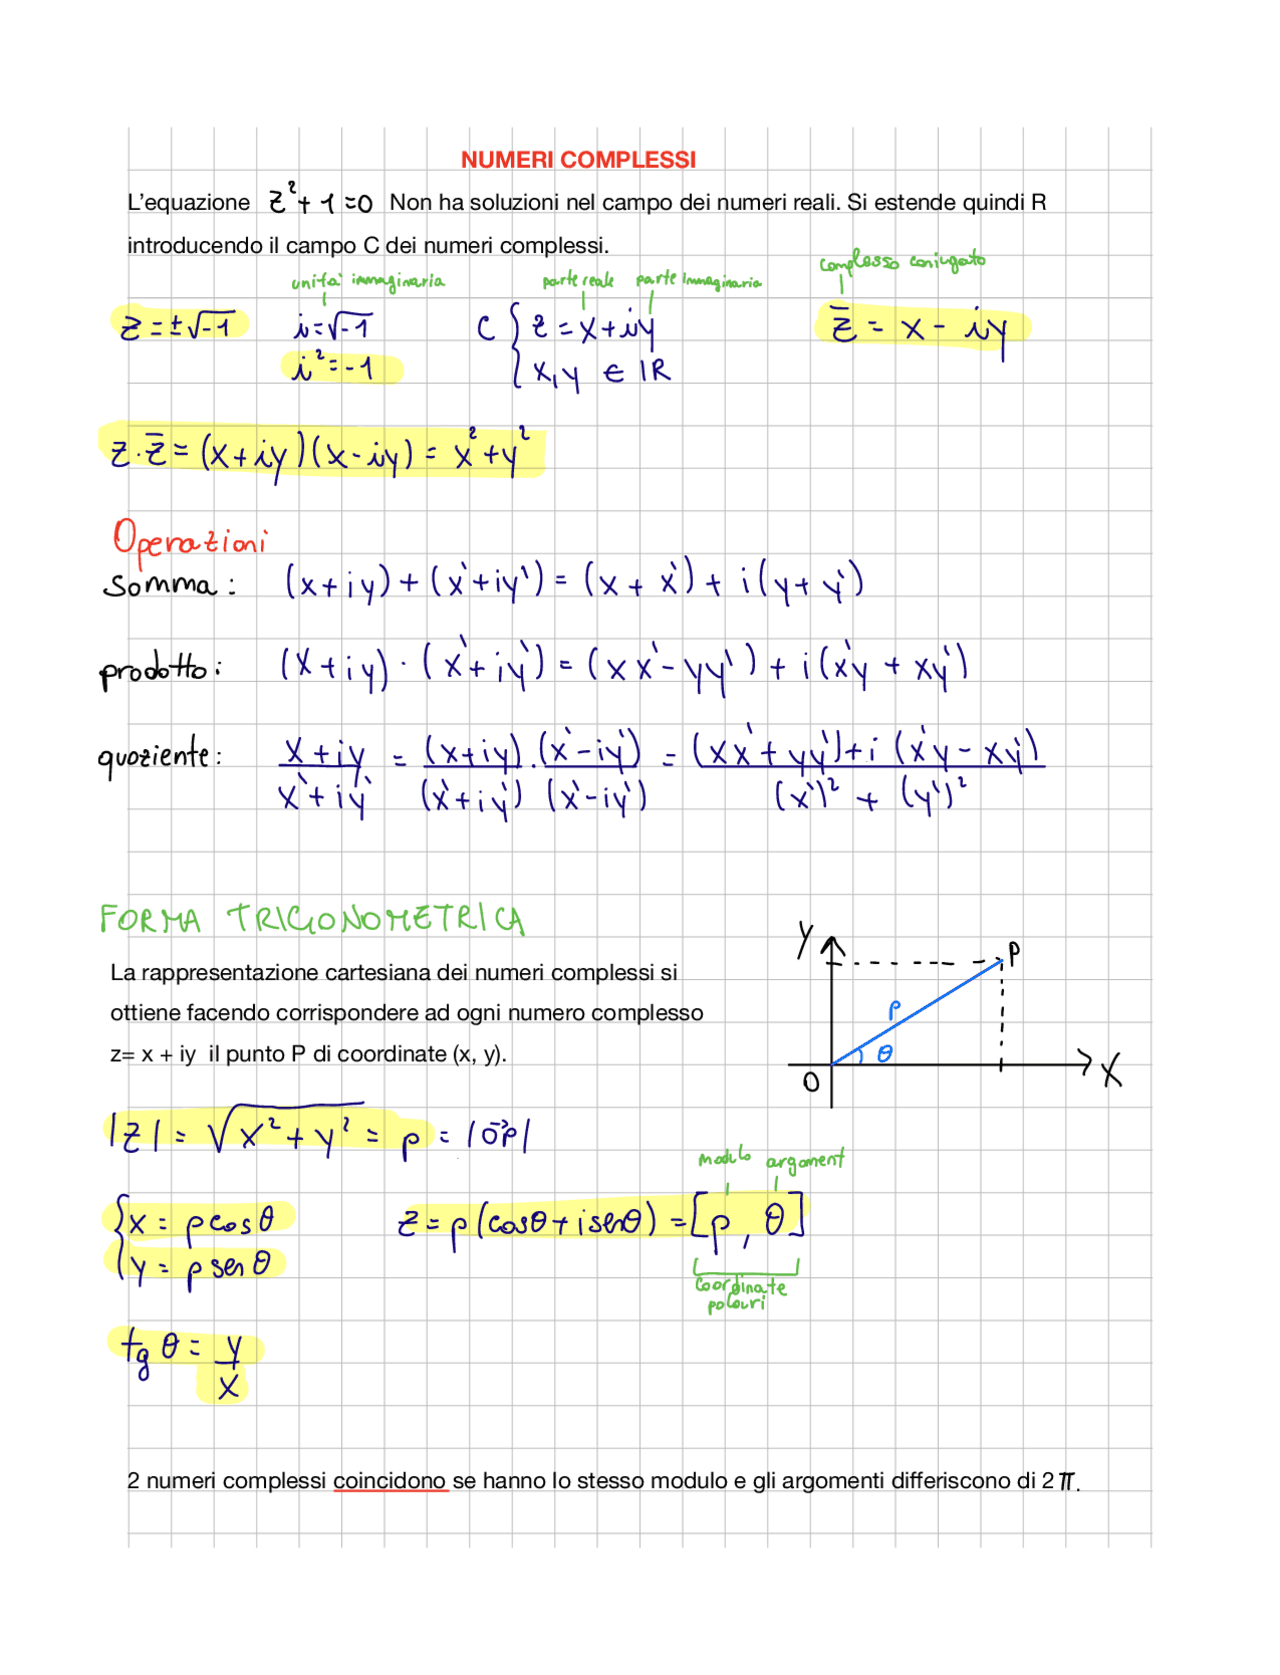 NUMERI COMPLESSI
L'equazione z² + 1 = 0 Non ha soluzioni nel campo dei numeri reali. Si estende quindi R
introducendo il campo C dei numeri complessi.
complesso coniugato
unità immaginaria parte reale parte immaginaria
z = ±√-1 i = √-1 C { z = x + iy z̄ = x - iy
i² = -1 x, y ∈ ℝ
z · z̄ = (x + iy)(x - iy) = x² + y²
Operazioni
somma: (x + iy) + (x' + iy') = (x + x') + i(y + y')
prodotto: (x + iy) · (x' + iy') = (xx' - yy') + i(x'y + xy')
quoziente: (x + iy)/(x' + iy') = (x + iy)/(x' + iy') · (x' - iy')/(x' - iy') = ((xx' + yy') + i(x'y - xy'))/((x')² + (y')²)
FORMA TRIGONOMETRICA
Y P
La rappresentazione cartesiana dei numeri complessi si
ottiene facendo corrispondere ad ogni numero complesso
ρ
z= x + iy il punto P di coordinate (x, y).
θ
O X
|z| = √x² + y² = ρ = |O⃗P|
modulo argument
{ x = ρ cos θ z = ρ(cos θ + i sen θ) = [ρ, θ]
y = ρ sen θ
coordinate
polari
tg θ = y/x
2 numeri complessi coincidono se hanno lo stesso modulo e gli argomenti differiscono di 2 π.